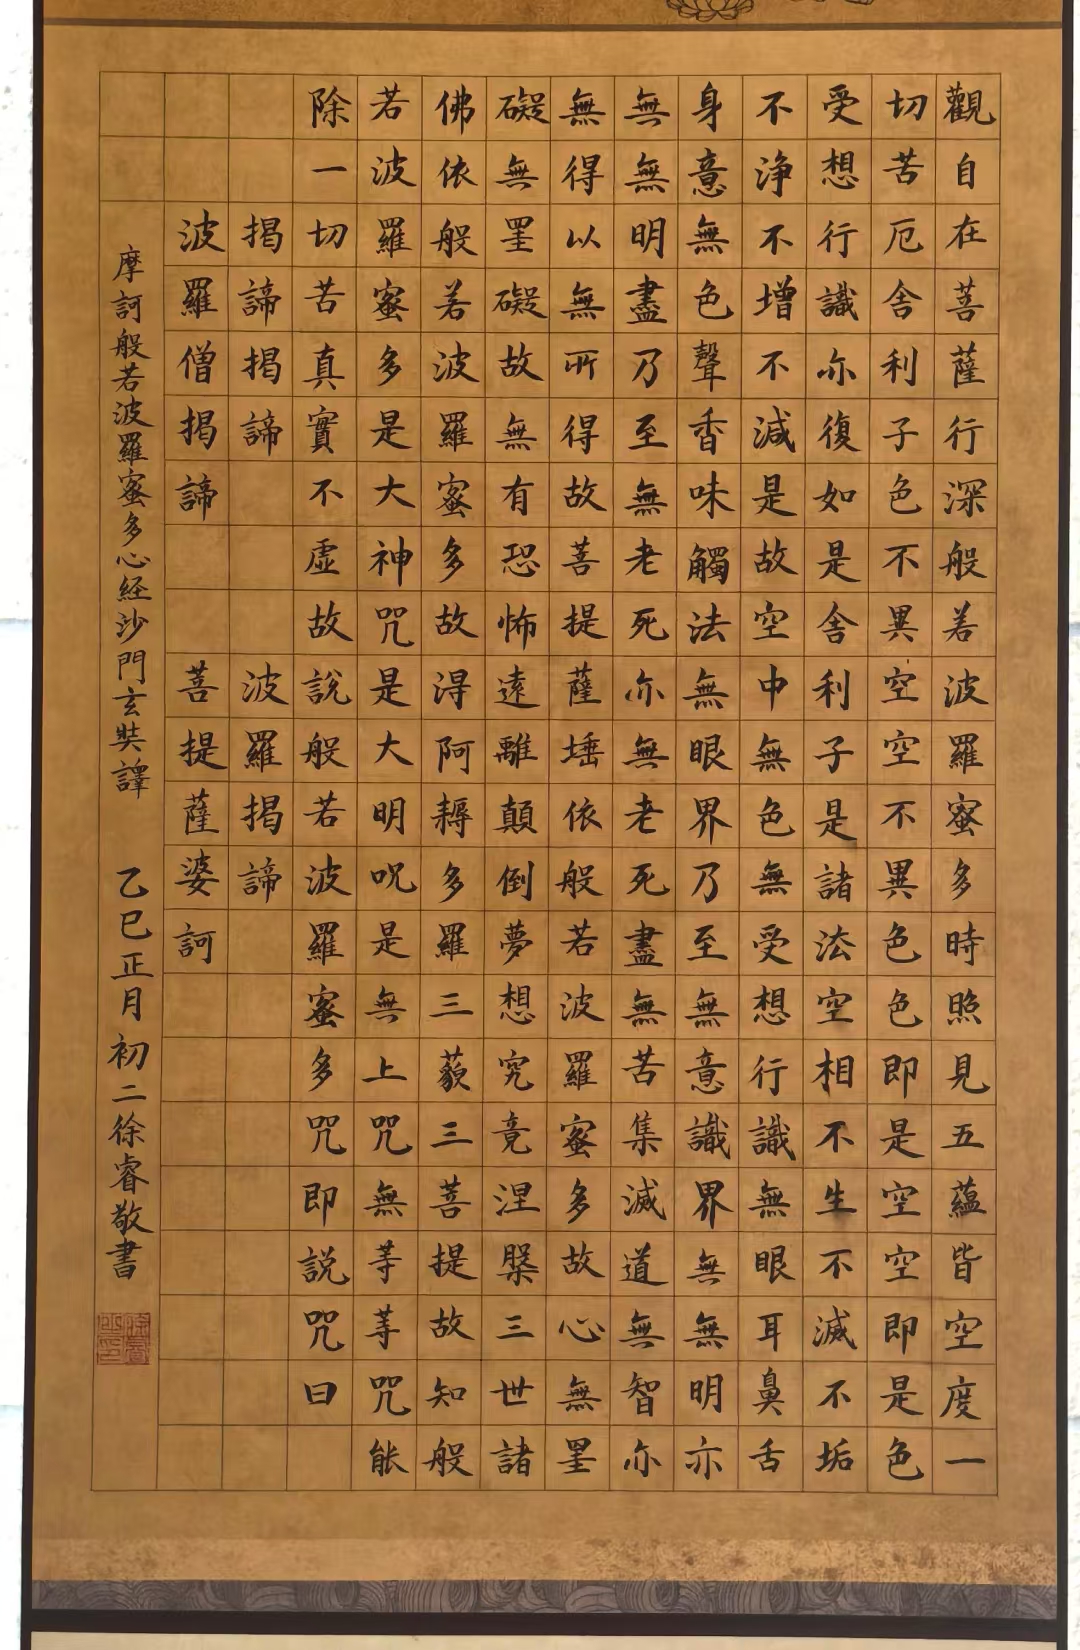 觀自在菩薩行深般若波羅蜜多時照見五蘊皆空度一
切苦厄舍利子色不異空空不異色色即是空空即是色
受想行識亦復如是舍利子是諸法空相不生不滅不垢
不淨不增不減是故空中無色無受想行識無眼耳鼻舌
身意無色聲香味觸法無眼界乃至無意識界無無明亦
無無明盡乃至無老死亦無老死盡無苦集滅道無智亦
無得以無所得故菩提薩埵依般若波羅蜜多故心無罣
礙無罣礙故無有恐怖遠離顛倒夢想究竟涅槃三世諸
佛依般若波羅蜜多故得阿耨多羅三藐三菩提故知般
若波羅蜜多是大神咒是大明呪是無上咒無等等咒能
除一切苦真實不虛故說般若波羅蜜多咒即説咒曰
揭諦揭諦 波羅揭諦
波羅僧揭諦 菩提薩婆訶
摩訶般若波羅蜜多心経沙門玄奘譯 乙巳正月初二徐睿敬書